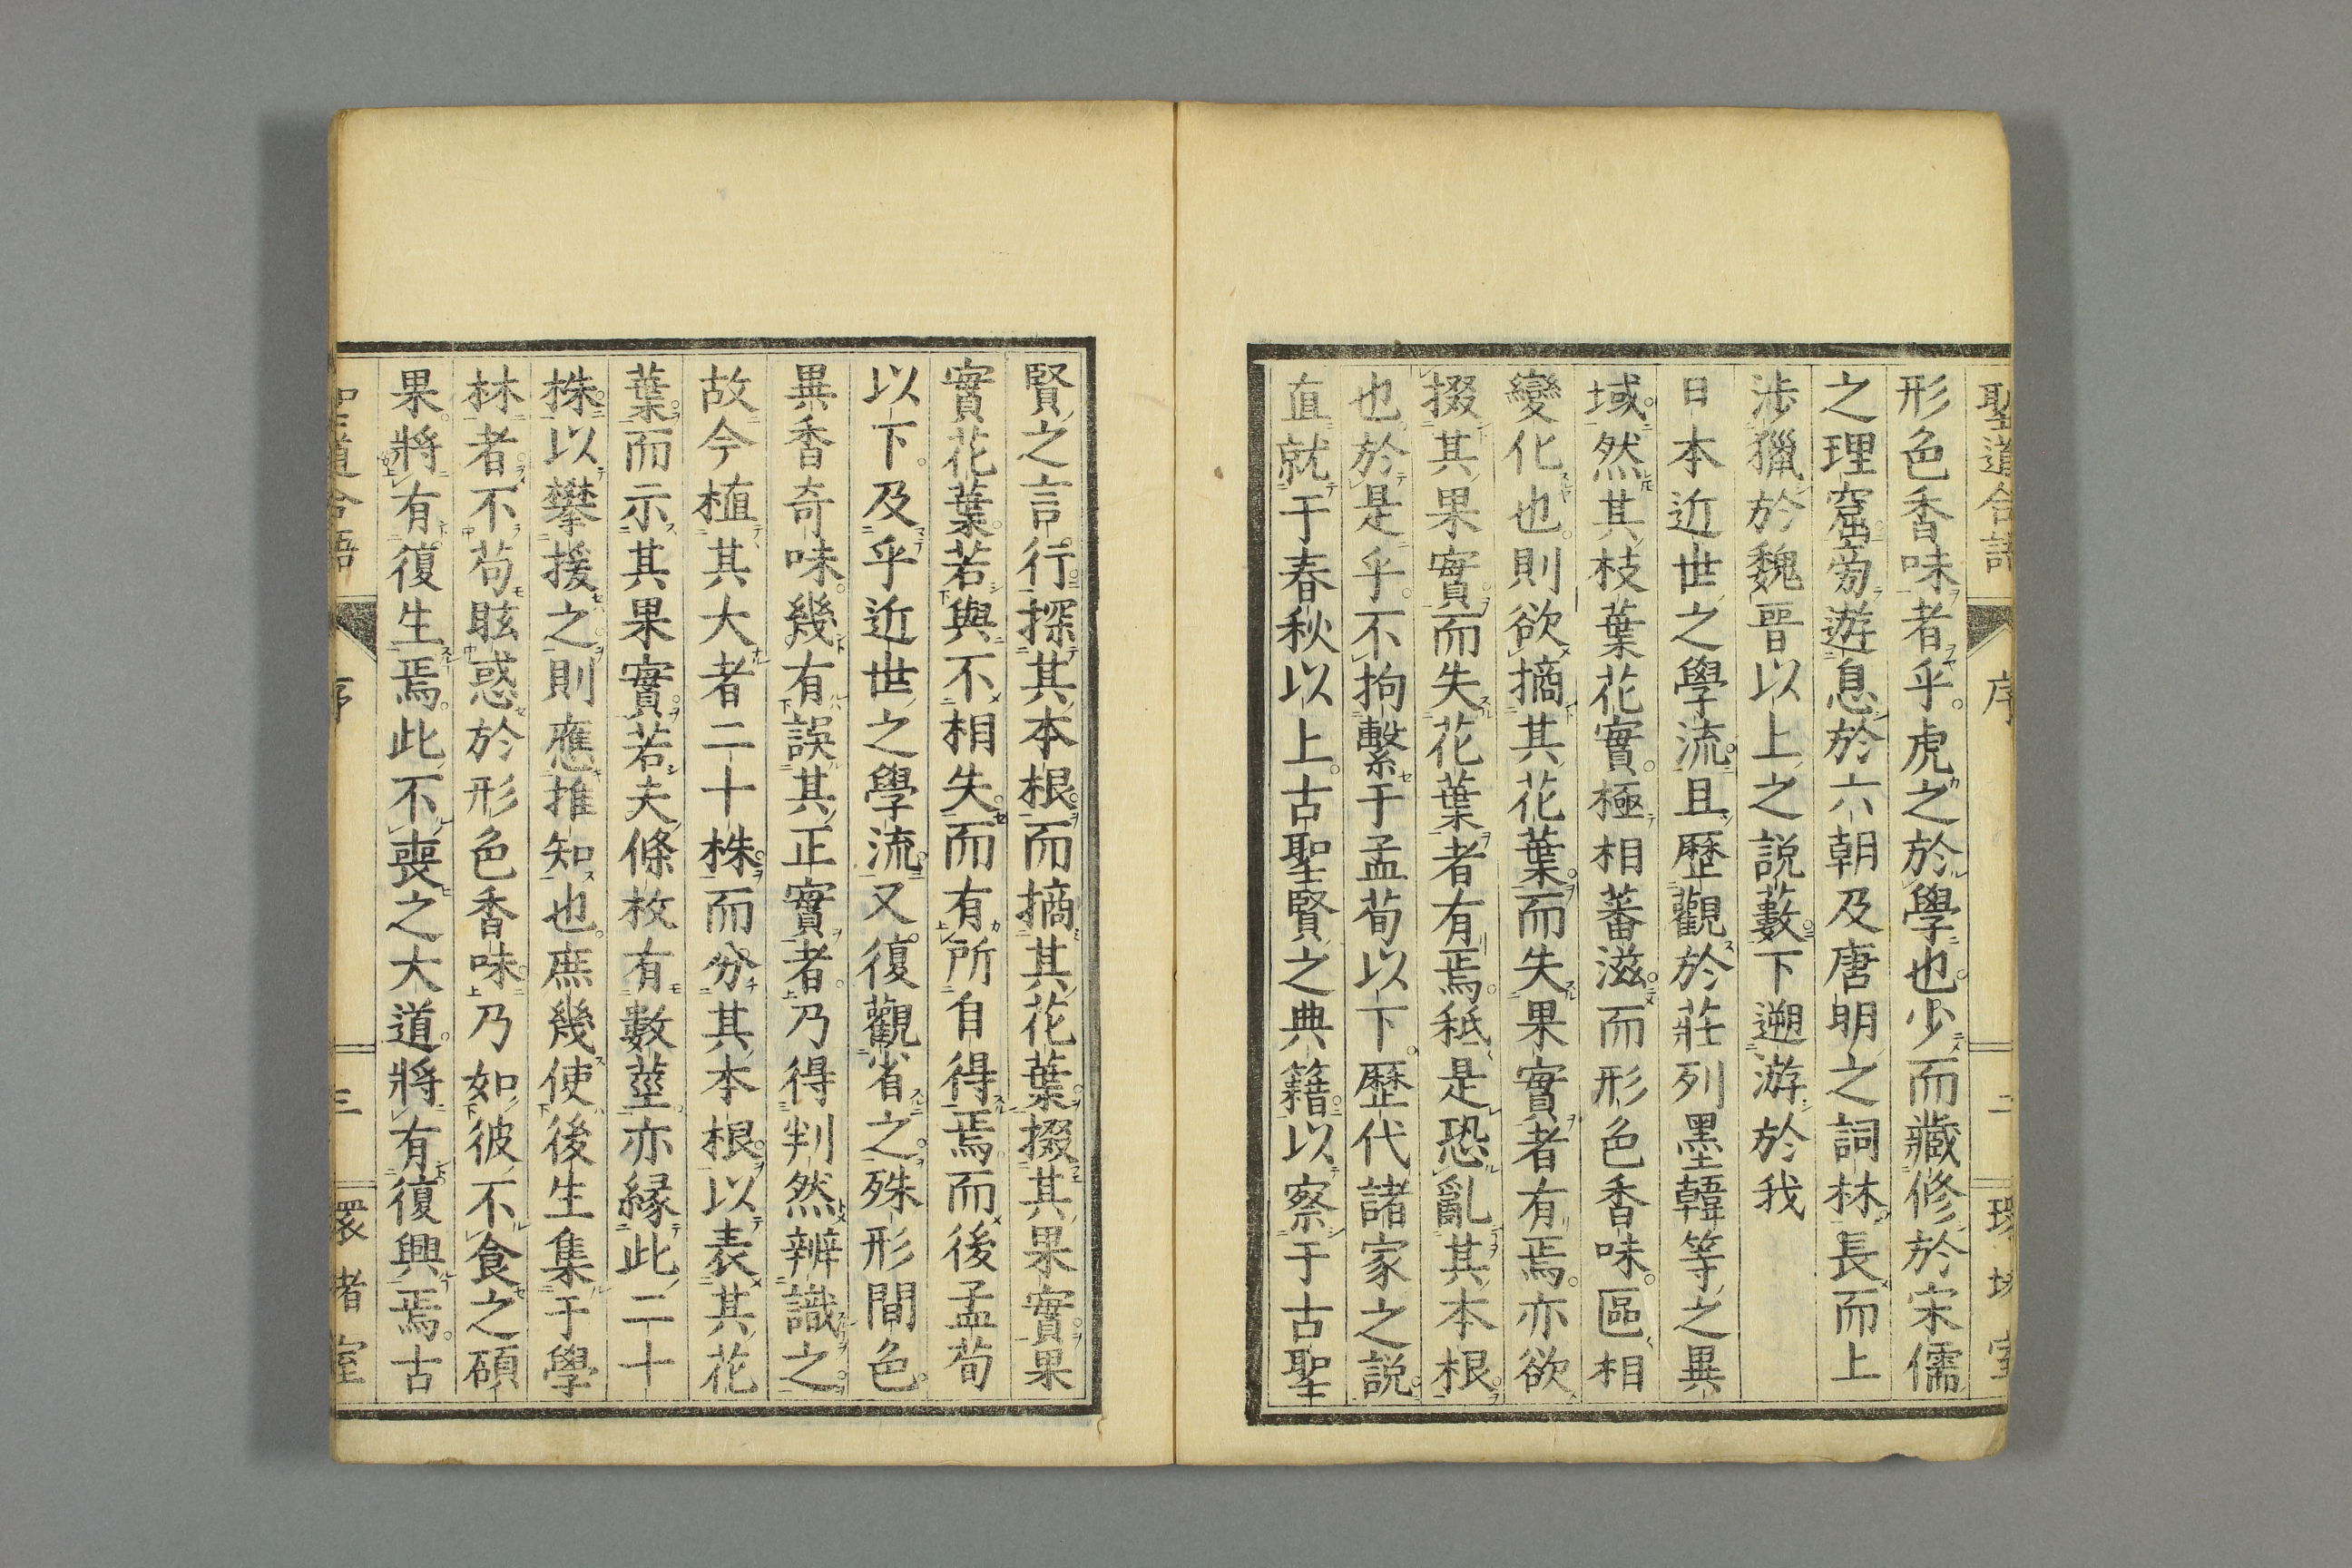 聖道合語 序 二 環堵室
形色香味者乎。虎之於學也。少而藏修於宋儒
之理窟。旁遊息於六朝及唐明之詞林。長而上
涉獵於魏晋以上之説藪。下遡游於我
日本近世之學流。且歷觀於莊列墨韓等之異
域。然其枝葉花實。極相蕃滋。而形色香味。區相
變化也。則欲摘其花葉。而失果實者有焉。亦欲
掇其果實。而失花葉者有焉。秖是恐亂其本根
也。於是乎。不拘繫于孟荀以下。歷代諸家之説。
直就于春秋以上。古聖賢之典籍。以察于古聖
賢之言行。探其本根。而摘其花葉。掇其果實。果
實花葉。若與不相失。而有所自得焉。而後孟荀
以下。及乎近世之學流。又復觀省之。殊形間色。
異香奇味。幾有誤其正實者。乃得判然辨識之。
故今植其大者二十株。而分其本根。以表其花
葉。而示其果實。若夫條枚有數莖。亦緣此二十
株。以攀援之。則應推知也。庶幾使後生集于學
林者。不苟眩惑於形色香味。乃如彼不食之碩
果。將有復生焉。此不喪之大道。將有復興焉。古
聖道合語 序 三 環堵室